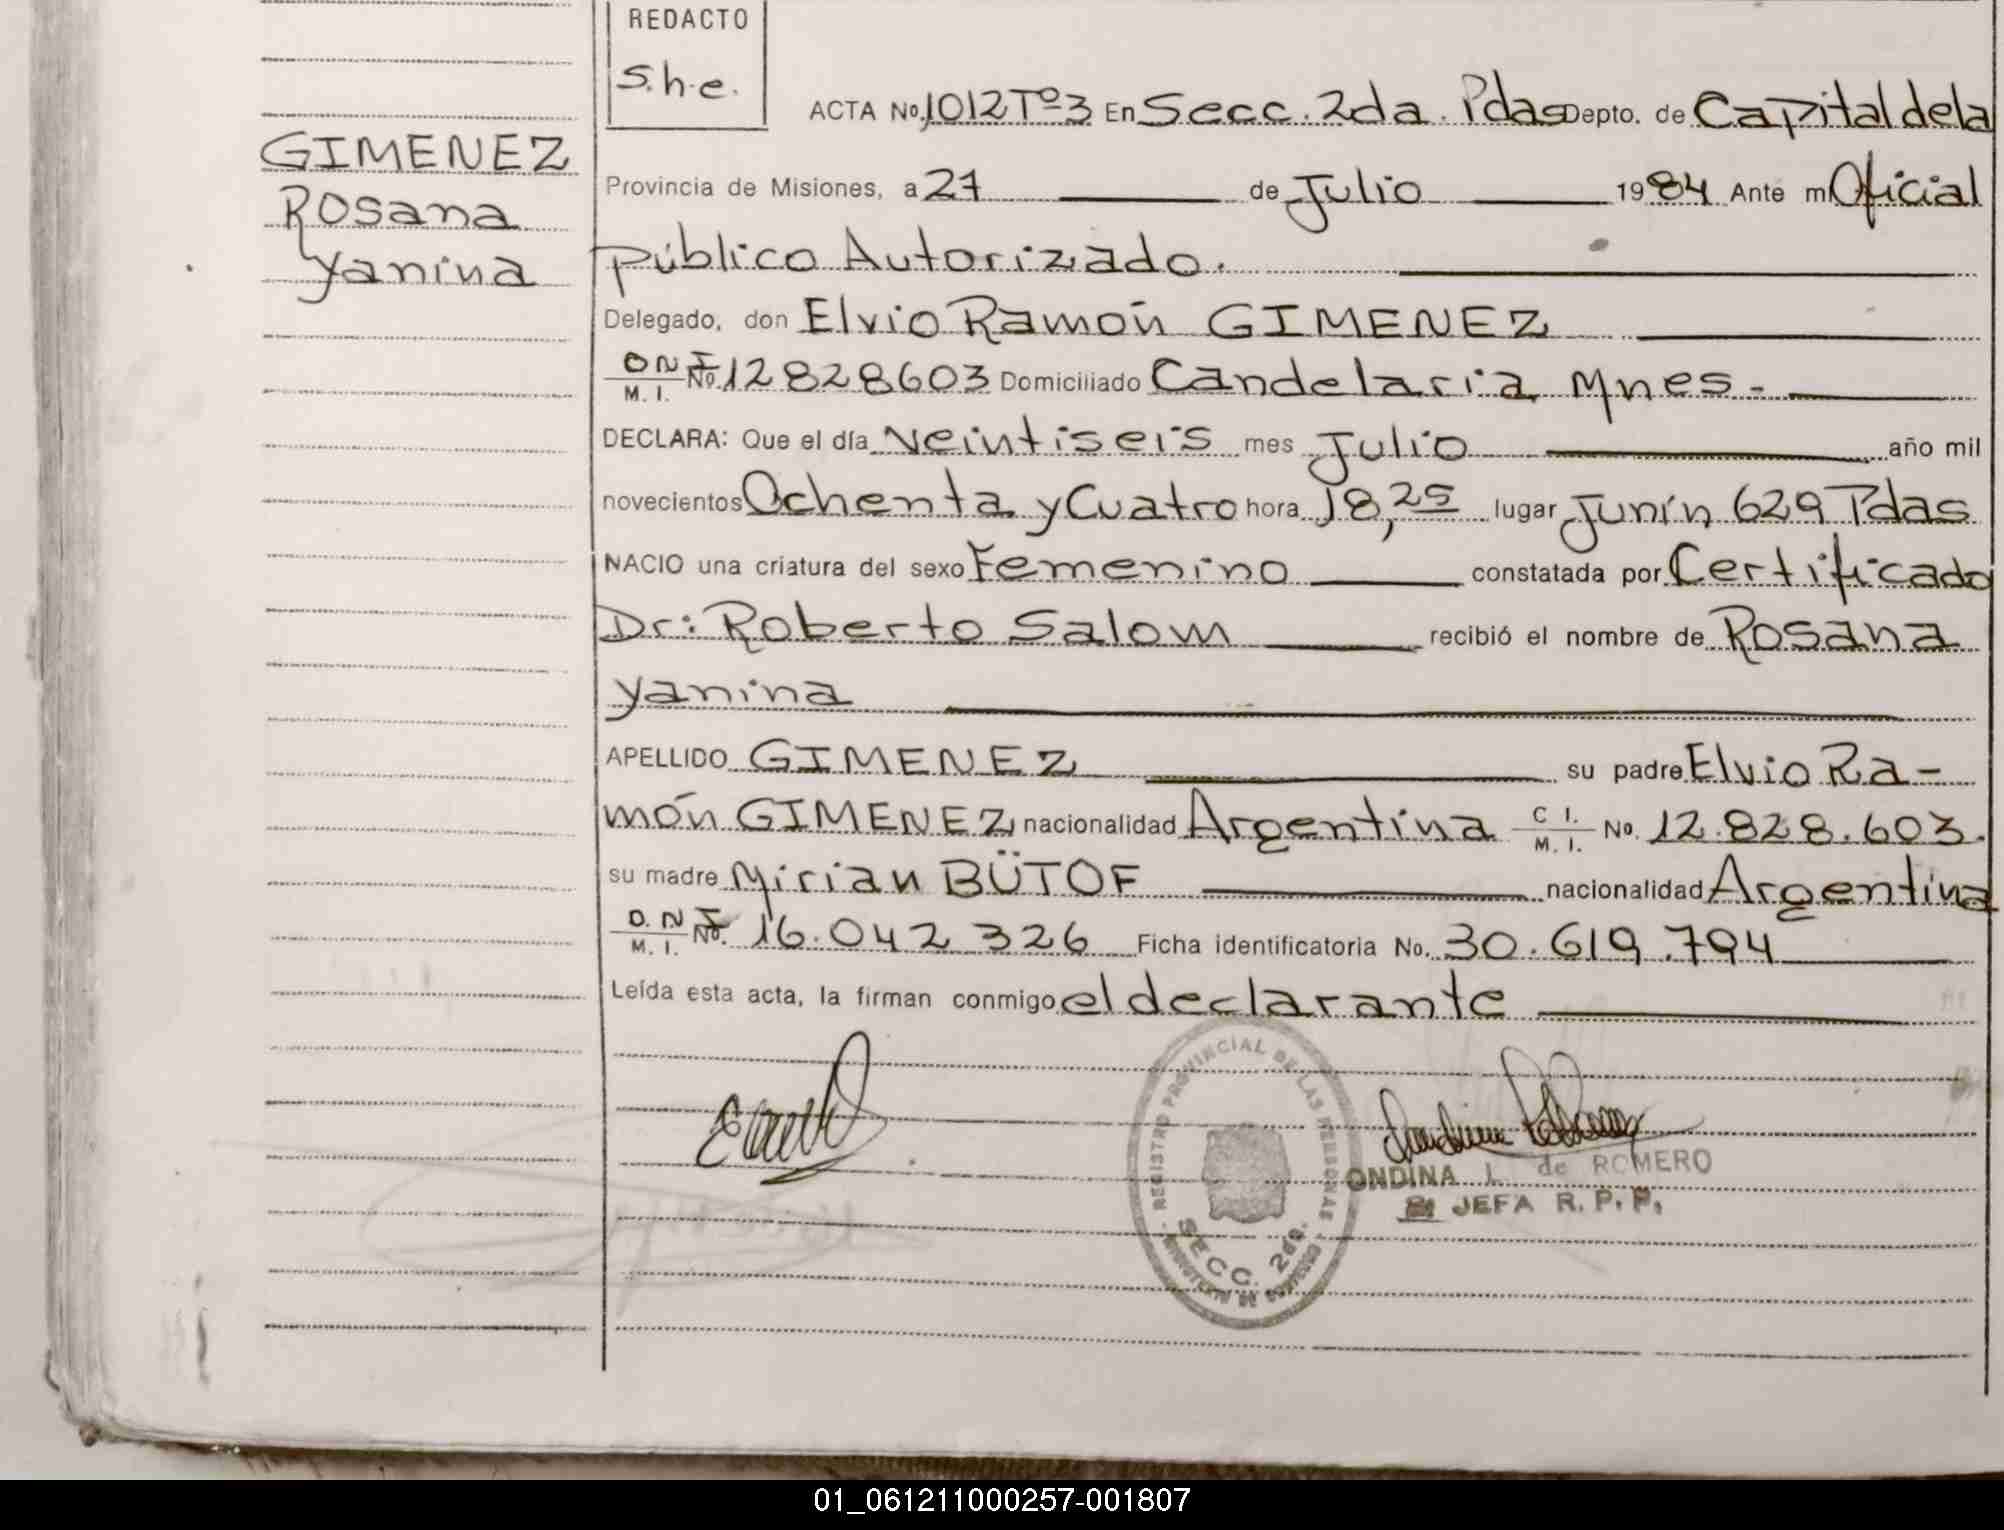 REDACTO
s.h.e.
ACTA No. 1012 Tº 3 En Secc. 2da. Pdas Depto. de Capital de la
GIMENEZ
Rosana
Yanina
Provincia de Misiones, a 27 de Julio 1984 Ante mi Oficial
público Autorizado.
Delegado, don Elvio Ramón GIMENEZ
D N I
M. I. No. 12828603 Domiciliado Candelaria Mnes.-
DECLARA: Que el día veintiseis mes Julio año mil
novecientos Ochenta y Cuatro hora 18,25 lugar Junín 629 Pdas
NACIO una criatura del sexo Femenino constatada por Certificado
Dr: Roberto Salom recibió el nombre de Rosana
Yanina
APELLIDO GIMENEZ su padre Elvio Ra-
món GIMENEZ nacionalidad Argentina C I. M. I. No. 12.828.603.
su madre Mirian BÜTOF nacionalidad Argentina
D. N. I
M. I. No. 16.042.326 Ficha identificatoria No. 30.619.794
Leída esta acta, la firman conmigo el declarante
REGISTRO PROVINCIAL DE LAS PERSONAS
SECC. 2da.
MINISTERIO DE GOBIERNO
ONDINA I. de ROMERO
JEFA R. P. P.
01_061211000257-001807